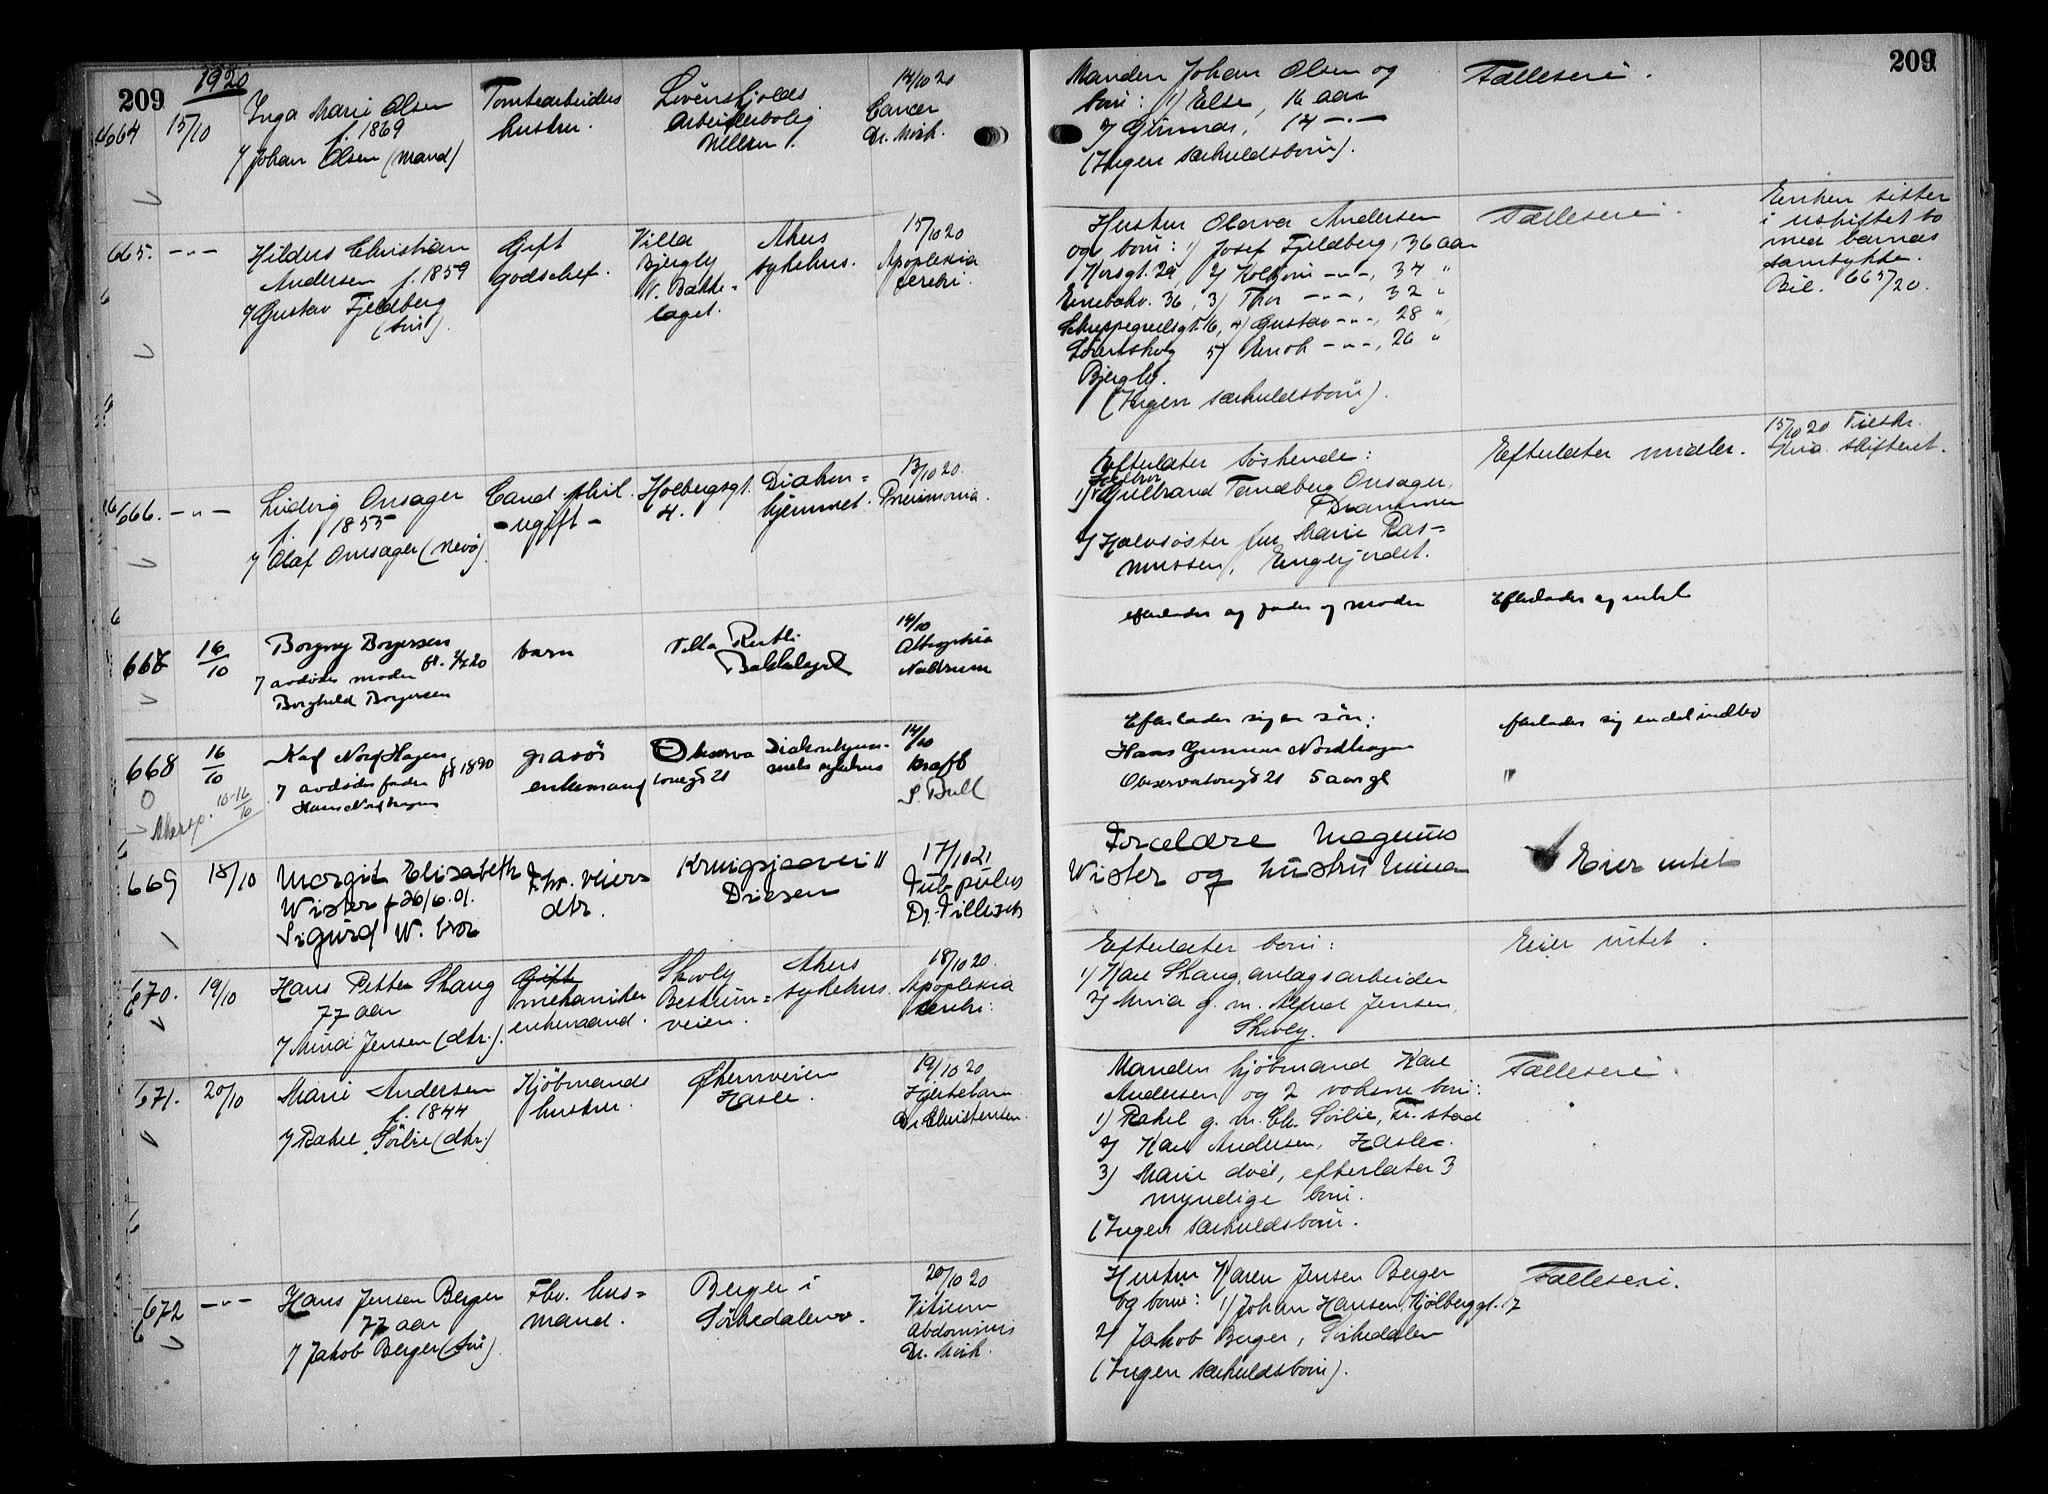 209
1920
664
15/10
Inga Marie Olsen
f. 1869
Johan Olsen (mand)
Tomtearbeiders
hustru.
Løvenskjolds
Arbeiderbolig
Ullern
14/10 20
Cancer
Dr. Mork.
665. -"-
Hildus Christian
Andersen f. 1859
Gustav Fjeldberg
(søn).
Gift
godschef.
Villa
Bjergly
N. Bække-
laget.
Akers
sykehus.
15/10 20
Apoplexia
cerebri.
666. -"-
Ludvig Onsager
f. 1855
Olaf Onsager (nevø).
Cand. phil.
- ugift -
Holbergsgt.
4.
Diakon=
hjemmet.
13/10 20.
Pneumonia.
667
16/10
Borgny Borgersen
avdødes moder
Borghild Borgersen
barn
Villa
Bækkelaget
14/10
668
16/10
Karf Nordhagen
fd 1890
avdødes fader
Hans Nordhagen
gravør
enkemand
Observa
toriegt 21
Diakonhjem-
mets sykehus
14/10
kræft
S. Bull
669
18/10
Margit Elisabeth
Wister f 26/6.01.
Sigurd W. bror
dtr.
Kringsjaavei 11
17/10 21
Tub pulm
670. 19/10
Hans Petter Skaug
77 aar
Mina Jensen (dtr.).
Gift
mekaniker
enkemand.
Skovly
Bestum=
veien.
Akers
sykehus.
18/10 20.
Apoplexia
cerebri.
671. 20/10
Marie Andersen
f. 1844
Rakel Sørlie (dtr.)
Kjøbmands
hustru.
Økernveien
Hasle.
19/10 20
Hjertelam
Dr. Christensen.
672 -"-
Hans Jensen Berger
77 aar
Jakob Berger (søn).
Fbv. hus=
mand.
Berger i
Sørkedalen.
20/10 20
Vitium
abdominis
Dr. Mork.
209
Manden Johan Olsen og
børn: 1) Else, 16 aar
2) Gunnar, 14 -"-
(Ingen særkuldsbørn).
Fælleseie.
Hustru Olava Andersen
og børn: 1) Josef Fjeldberg, 36 aar
Korsgt. 29, 2) Kolbjørn -"-, 34 "
Enebakv. 36, 3) Thor -"-, 32 "
Schweppegrellsgt. 16, 4) Gustav -"-, 28 "
5) Enok -"-, 26 "
Bjergly.
(Ingen særkuldsbørn).
Fælleseie.
Enken sitter
i uskiftet bo
med barnas
samtykke.
Bil. 665/20.
Efterlater søskende:
1) Gulbrand Tandberg Onsager,
Drammen
2) Halvsøster fru Marie Ras=
mussen, Engerjordet.
Efterlater midler.
15/10 20 Tilskr.
Kria. skifteret.
efterlader sig fader og moder
Efterlader sig intet
Efterlader sig en søn:
Hans Gunnar Nordhagen
Observatoriegt 21 5 aar gl
efterlader sig en del indbo
Forældre Magnus
Wister og hustru Mina
Eier intet
Efterlater børn:
1) Karl Skaug, anlægsarbeider
2) Mina g. m. Alfred Jensen,
Skovly.
Eier intet.
Manden kjøbmand Karl
Andersen og 2 voksne børn:
1) Rakel g. m. Chr. Sørlie, Fr.stad
2) Karl Andersen, Hasle.
3) Marie død, efterlater 3
myndige børn.
(Ingen særkuldsbørn.
Fælleseie.
Hustru Karen Jensen Berger
og børn: 1) Johan Hansen, Kjølberggt. 17
2) Jakob Berger, Sørkedalen
(Ingen særkuldsbørn).
Fælleseie.